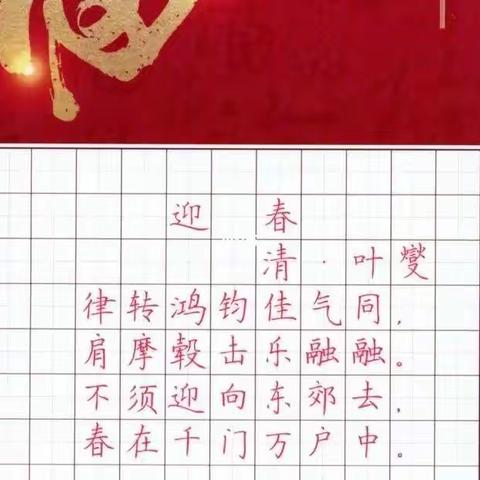 迎春
清·叶燮
律转鸿钧佳气同，
肩摩毂击乐融融。
不须迎向东郊去，
春在千门万户中。